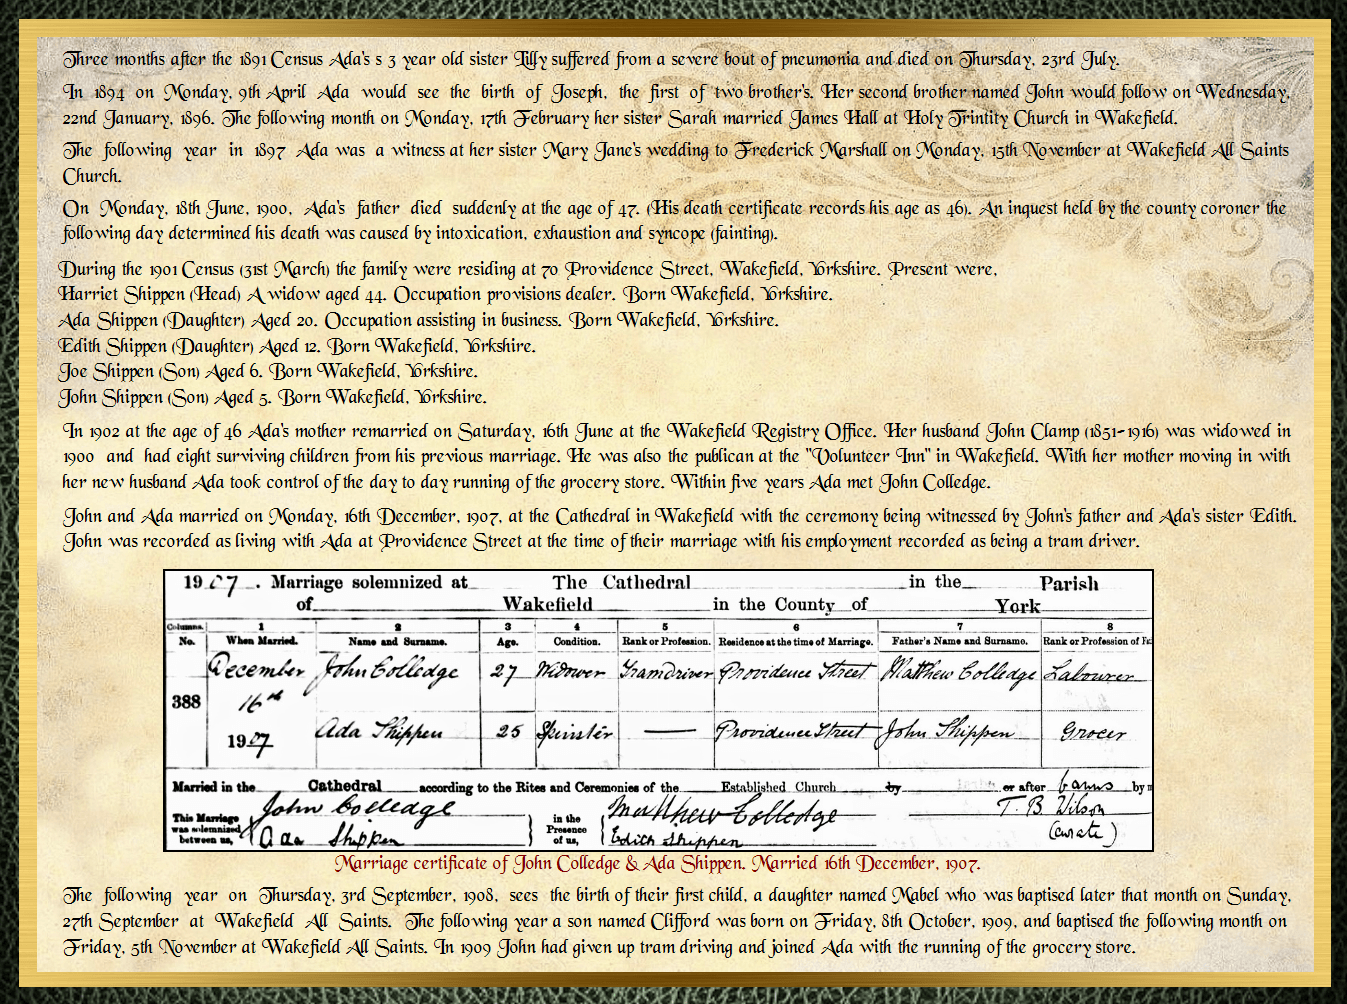 Three months after the 1891 Census Ada's s 3 year old sister Lilly suffered from a severe bout of pneumonia and died on Thursday, 23rd July.
In 1894 on Monday, 9th April Ada would see the birth of Joseph, the first of two brother's. Her second brother named John would follow on Wednesday,
22nd January, 1896. The following month on Monday, 17th February her sister Sarah married James Hall at Holy Trintity Church in Wakefield.
The following year in 1897 Ada was a witness at her sister Mary Jane's wedding to Frederick Marshall on Monday, 15th November at Wakefield All Saints
Church.
On Monday, 18th June, 1900, Ada's father died suddenly at the age of 47. (His death certificate records his age as 46). An inquest held by the county coroner the
following day determined his death was caused by intoxication, exhaustion and syncope (fainting).
During the 1901 Census (31st March) the family were residing at 70 Providence Street, Wakefield, Yorkshire. Present were,
Harriet Shippen (Head) A widow aged 44. Occupation provisions dealer. Born Wakefield, Yorkshire.
Ada Shippen (Daughter) Aged 20. Occupation assisting in business. Born Wakefield, Yorkshire.
Edith Shippen (Daughter) Aged 12. Born Wakefield, Yorkshire.
Joe Shippen (Son) Aged 6. Born Wakefield, Yorkshire.
John Shippen (Son) Aged 5. Born Wakefield, Yorkshire.
In 1902 at the age of 46 Ada's mother remarried on Saturday, 16th June at the Wakefield Registry Office. Her husband John Clamp (1851-1916) was widowed in
1900 and had eight surviving children from his previous marriage. He was also the publican at the "Volunteer Inn" in Wakefield. With her mother moving in with
her new husband Ada took control of the day to day running of the grocery store. Within five years Ada met John Colledge.
John and Ada married on Monday, 16th December, 1907, at the Cathedral in Wakefield with the ceremony being witnessed by John's father and Ada's sister Edith.
John was recorded as living with Ada at Providence Street at the time of their marriage with his employment recorded as being a tram driver.
1907. Marriage solemnized at The Cathedral in the Parish
of Wakefield in the County of York
Columns. 1 2 3 4 5 6 7 8
No. When Married. Name and Surname. Age. Condition. Rank or Profession. Residence at the time of Marriage. Father's Name and Surname. Rank or Profession of
December John Colledge 27 Widower Tramdriver Providence Street Matthew Colledge Labourer
388 16th
1907 Ada Shippen 25 Spinster — Providence Street John Shippen Grocer
Married in the Cathedral according to the Rites and Ceremonies of the Established Church by or after banns by
This Marriage was solemnized between us, John Colledge in the Presence of us, Matthew Colledge T. B. Wilson
Ada Shippen Edith Shippen (curate)
Marriage certificate of John Colledge & Ada Shippen. Married 16th December, 1907.
The following year on Thursday, 3rd September, 1908, sees the birth of their first child, a daughter named Mabel who was baptised later that month on Sunday,
27th September at Wakefield All Saints. The following year a son named Clifford was born on Friday, 8th October, 1909, and baptised the following month on
Friday, 5th November at Wakefield All Saints. In 1909 John had given up tram driving and joined Ada with the running of the grocery store.